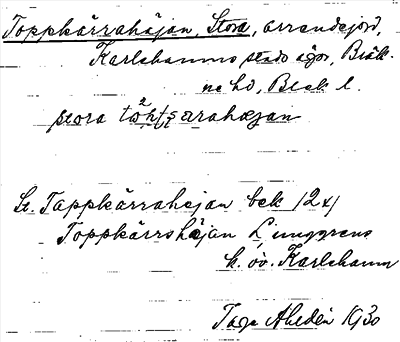 Toppkärrahejan, Stora, arrendejord,
Karlshamns stads ägor, Bräk-
ne hd, Blek l.
stora
St. Tappkärrahejan bek /2x/
Toppkärrshejan Ljunggrens
k. öv. Karlshamn
Tage Ahldén 1930